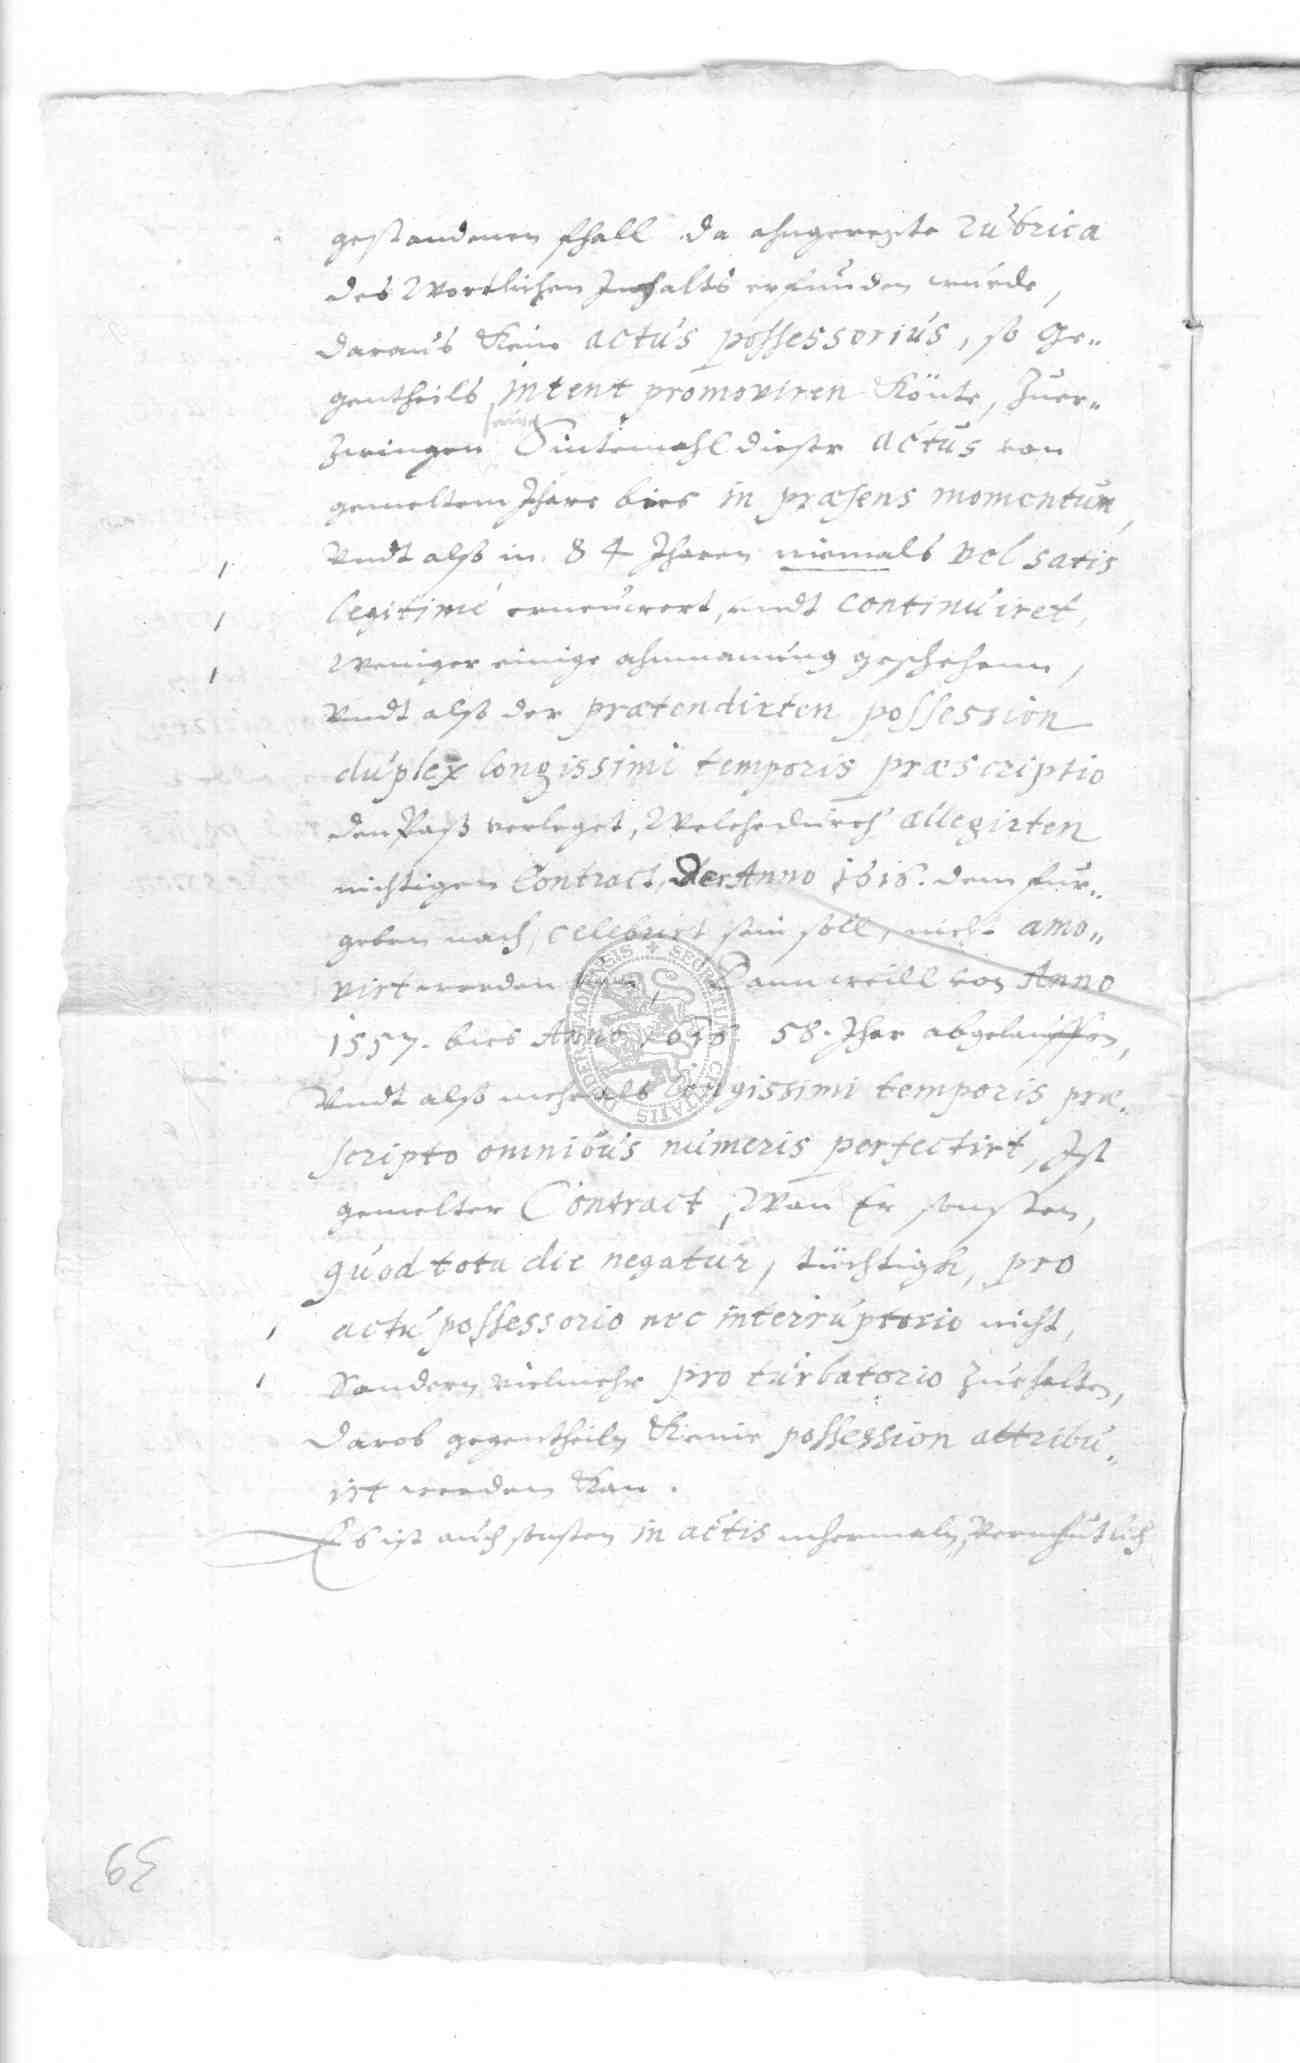 gestandenen fhall da ahngeregte Rubrica
des Wortlichen Inhalts erfunden wurde,
daraus Kein actus possessorius, so Ge-
gentheils intent promoviren Könte, Zuer-
Zwingen seye Sintemahl dieser actus von
gemeltem Jhare bies in præsens momentum,
Undt also in 84 Jharen niemals vel satis
legitimè erneuwert, undt continuiret,
Weniger einige ahnmanung geschehenn,
Undt also der prætendirten possession
duplex longissimi temporis præscriptio
den Paß verleget, Welche durch allegirten
nichtigen Contract, der Anno 1616. dem fur-
geben nach, celebrirt sein soll, nicht amo-
virt werden Dannweill von Anno
1557. bies Anno 1616 58. Jhar abgelauffen,
Undt also mehr als longissimi temporis præ-
scriptio omnibus numeris perfectirt, Ist
gemelter Contract, Wan Er sonsten,
quod tota die negatur, tüchtigh, pro
actu possessorio nec interruptorio nicht,
Sondern vielmehr pro turbatorio Zuehalten,
darob gegentheiln Keine possession attribu-
irt werden Kan.
Es ist auch sonsten in actis nhermaln, Vermhutlich
SECRETUM CIVITATIS
65